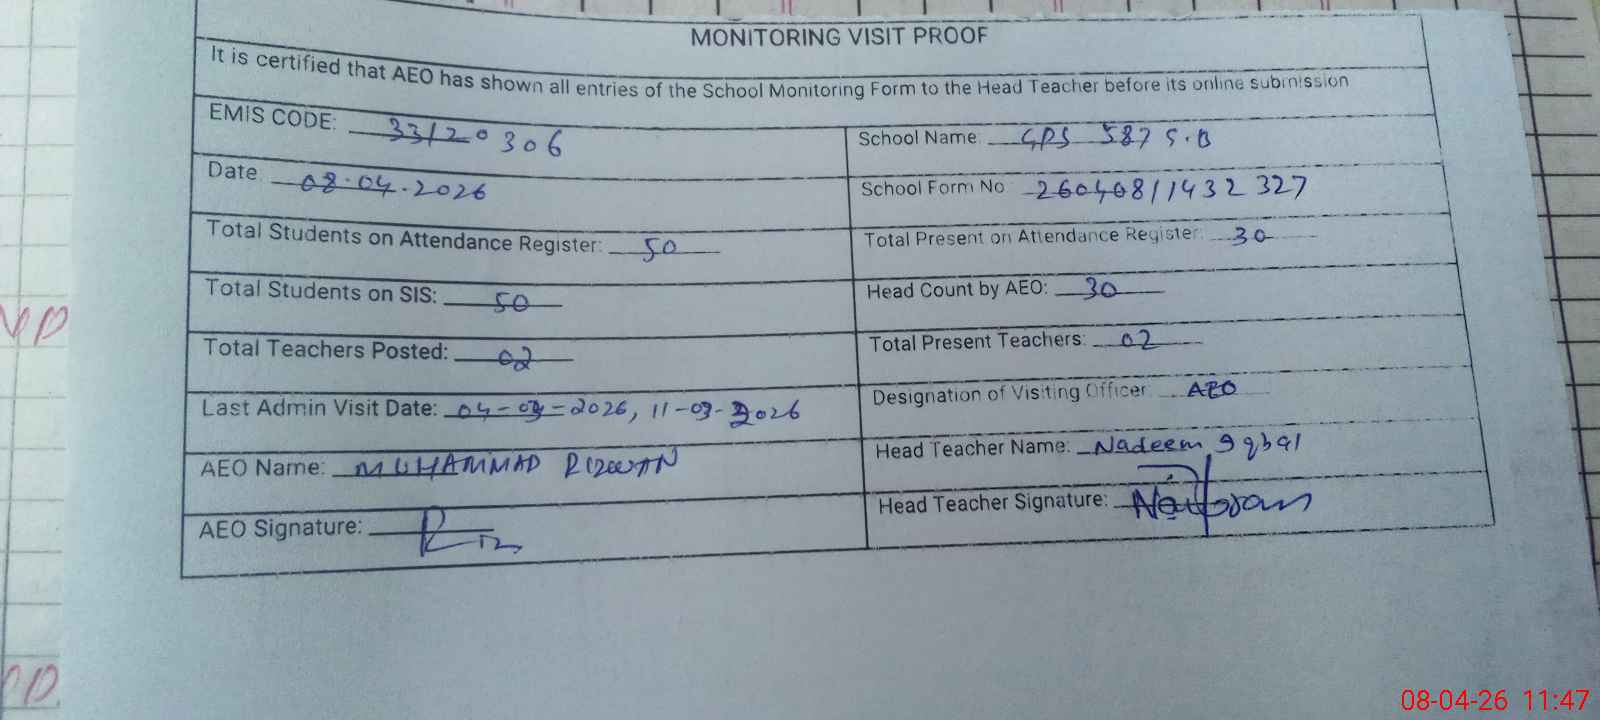 MONITORING VISIT PROOF
It is certified that AEO has shown all entries of the School Monitoring Form to the Head Teacher before its online submission
EMIS CODE: 33120306
School Name: GPS 587 G.B
Date: 08.04.2026
School Form No 26040811432327
Total Students on Attendance Register: 50
Total Present on Attendance Register: 30
Total Students on SIS: 50
Head Count by AEO: 30
Total Teachers Posted: 02
Total Present Teachers: 02
Last Admin Visit Date: 04-03-2026, 11-03-2026
Designation of Visiting Officer: AEO
AEO Name: MUHAMMAD RIZWAN
Head Teacher Name: Nadeem Iqbal
AEO Signature:
Head Teacher Signature:
08-04-26 11:47